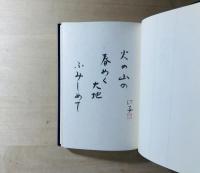 火の山の
春めく大地
ふみしめて